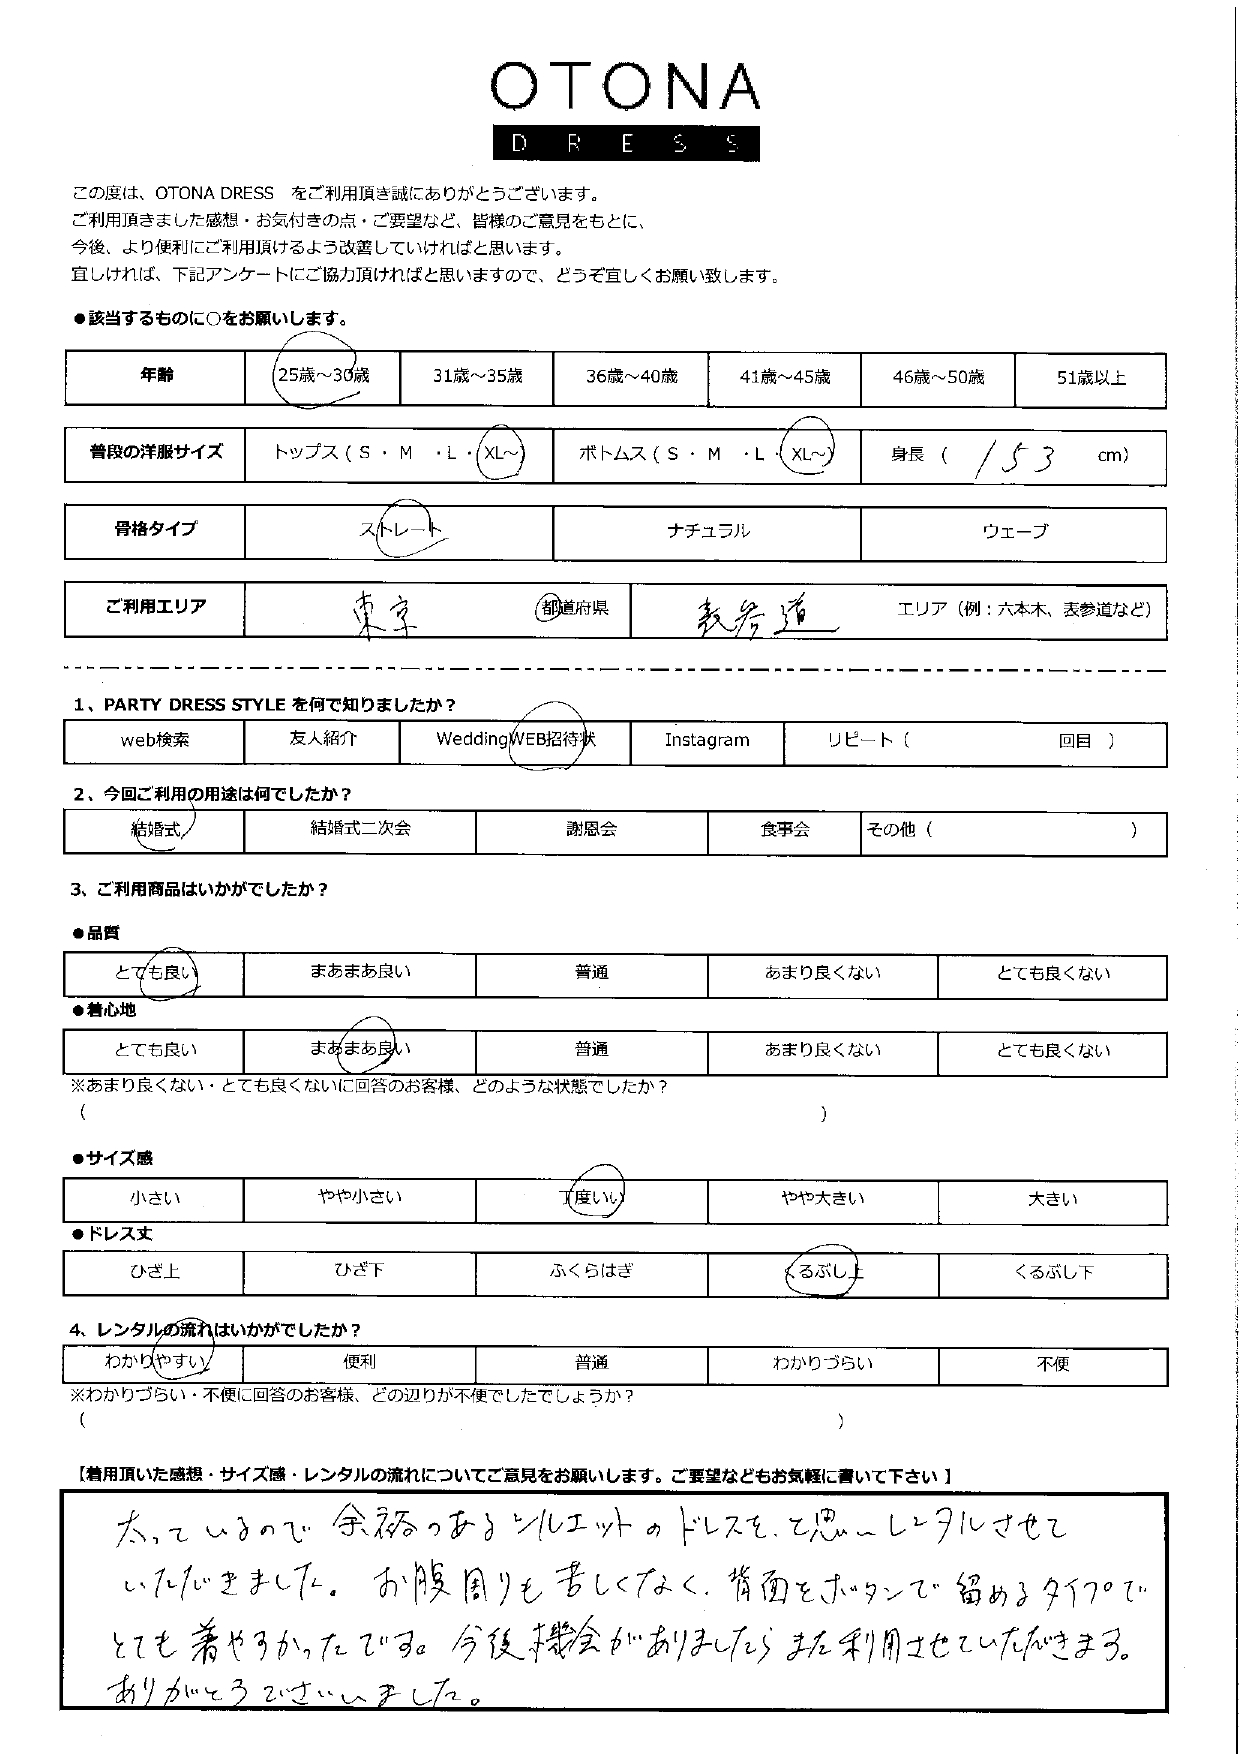 OTONA
DRESS
この度は、OTONA DRESS をご利用頂き誠にありがとうございます。
ご利用頂きました感想・お気付きの点・ご要望など、皆様のご意見をもとに、
今後、より便利にご利用頂けるよう改善していければと思います。
宜しければ、下記アンケートにご協力頂ければと思いますので、どうぞ宜しくお願い致します。
●該当するものに○をお願いします。
年齢 25歳～30歳 31歳～35歳 36歳～40歳 41歳～45歳 46歳～50歳 51歳以上
普段の洋服サイズ トップス ( S ・ M ・L ・ XL～) ボトムス ( S ・ M ・L ・ XL～) 身長 ( 153 cm)
骨格タイプ ストレート ナチュラル ウェーブ
ご利用エリア 東京 都道府県 表参道 エリア（例：六本木、表参道など）
1、PARTY DRESS STYLE を何で知りましたか？
web検索 友人紹介 WeddingWEB招待状 Instagram リピート（ 回目 ）
2、今回ご利用の用途は何でしたか？
結婚式 結婚式二次会 謝恩会 食事会 その他（ ）
3、ご利用商品はいかがでしたか？
●品質
とても良い まあまあ良い 普通 あまり良くない とても良くない
●着心地
とても良い まあまあ良い 普通 あまり良くない とても良くない
※あまり良くない・とても良くないに回答のお客様、どのような状態でしたか？
（ ）
●サイズ感
小さい やや小さい 丁度いい やや大きい 大きい
●ドレス丈
ひざ上 ひざ下 ふくらはぎ くるぶし上 くるぶし下
4、レンタルの流れはいかがでしたか？
わかりやすい 便利 普通 わかりづらい 不便
※わかりづらい・不便に回答のお客様、どの辺りが不便でしたでしょうか？
（ ）
【着用頂いた感想・サイズ感・レンタルの流れについてご意見をお願いします。ご要望などもお気軽に書いて下さい 】
太っているので余裕のあるシルエットのドレスを、と思いレンタルさせて
いただきました。お腹周りも苦しくなく、背面をボタンで留めるタイプで
とても着やすかったです。今後機会がありましたらまた利用させていただきます。
ありがとうございました。